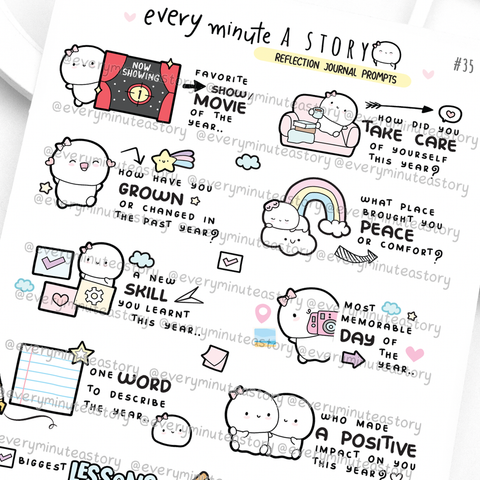 every minute A STORY
REFLECTION JOURNAL PROMPTS
#35
NOW
SHOWING
1
FAVORITE
SHOW/
MOVIE
OF THE
YEAR..
HOW DID YOU
TAKE CARE
OF YOURSELF
THIS YEAR?
HOW HAVE YOU
GROWN
OR CHANGED IN
THE PAST YEAR?
WHAT PLACE
BROUGHT YOU
PEACE
OR COMFORT?
A NEW
SKILL
YOU LEARNT
THIS YEAR..
MOST
MEMORABLE
DAY OF
THE
YEAR..
ONE WORD
TO DESCRIBE
THE YEAR..
WHO MADE
A POSITIVE
IMPACT ON YOU
THIS YEAR?
BIGGEST LESSONS
@everyminuteastory